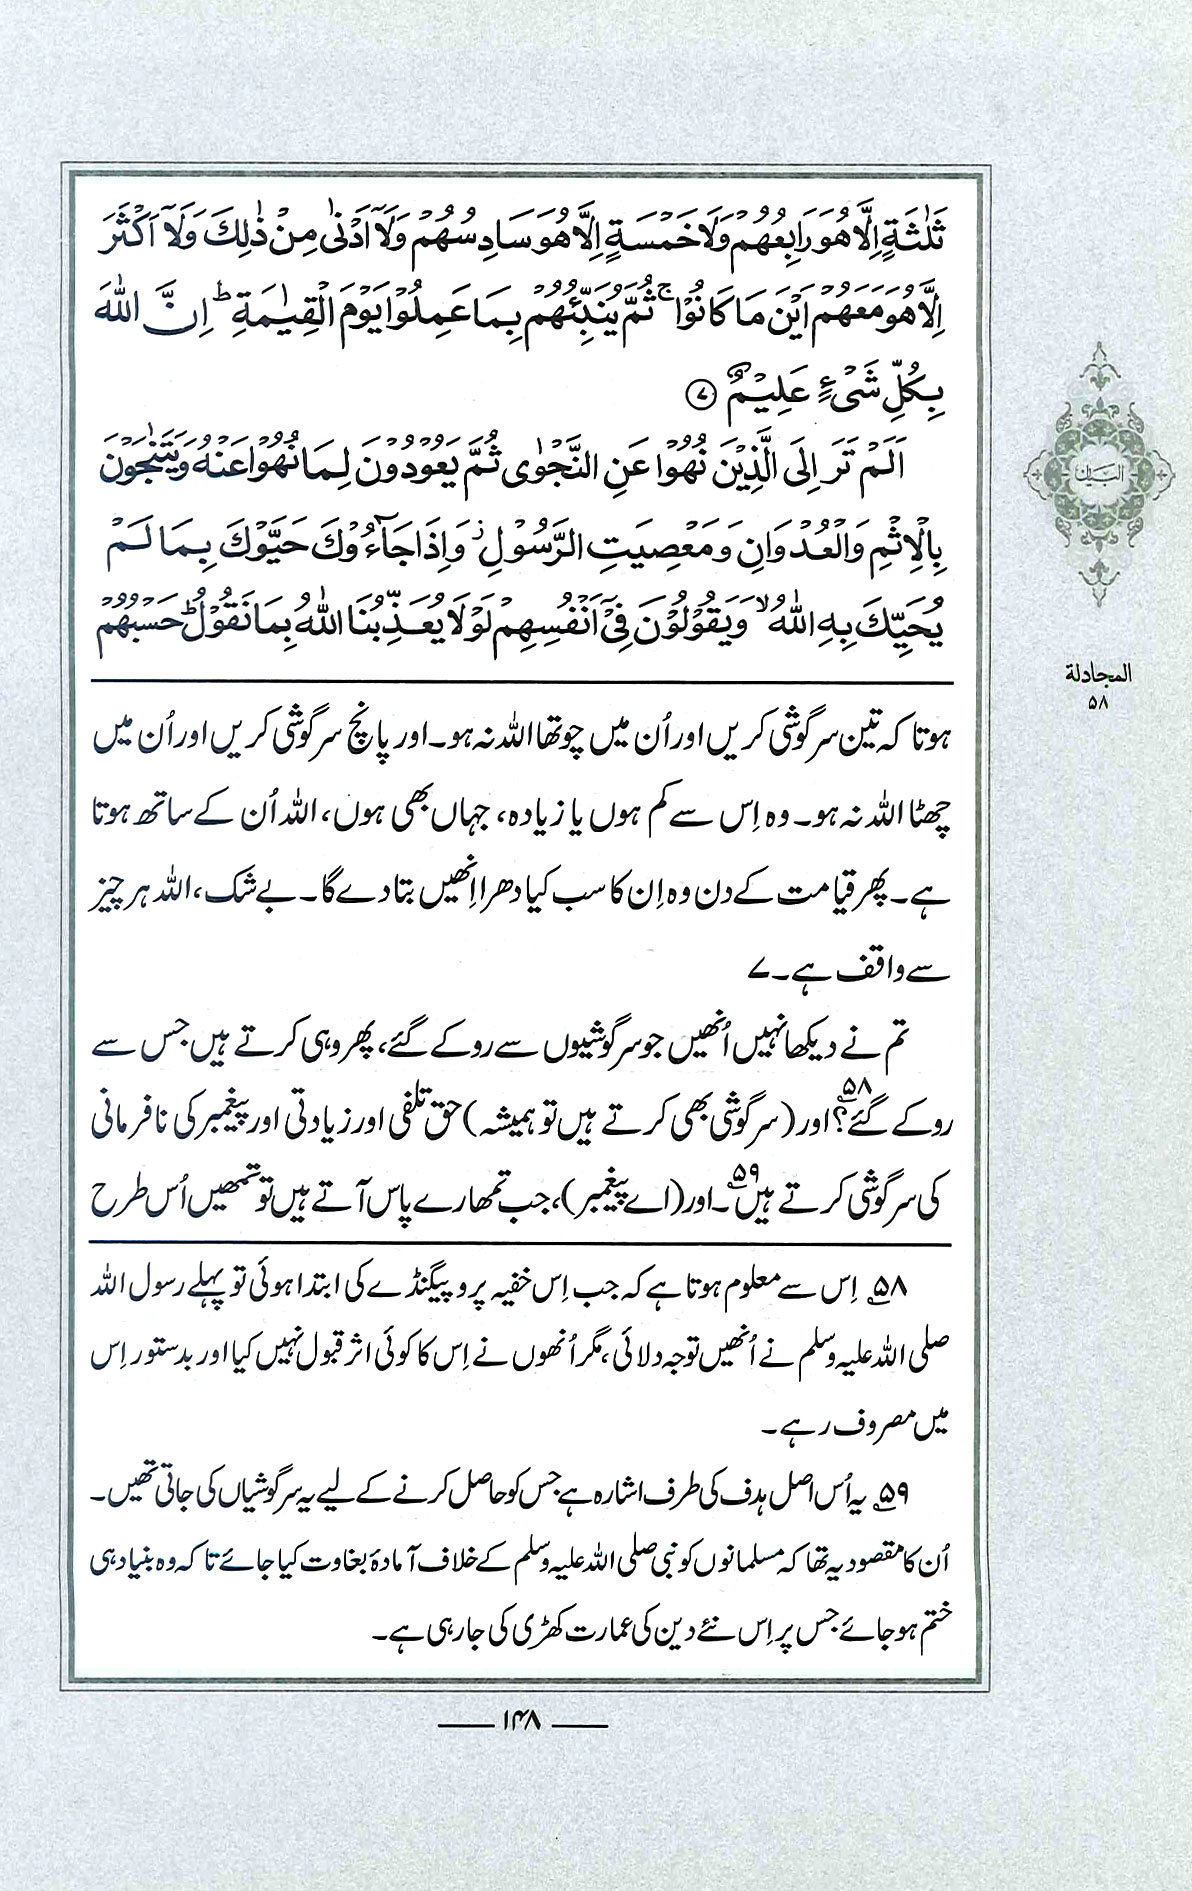 ثَلٰثَةٍ اِلَّا هُوَ رَابِعُهُمْ وَلَا خَمْسَةٍ اِلَّا هُوَ سَادِسُهُمْ وَلَآ اَدْنٰى مِنْ ذٰلِكَ وَلَآ اَكْثَرَ
اِلَّا هُوَ مَعَهُمْ اَيْنَ مَا كَانُوْا ۚ ثُمَّ يُنَبِّئُهُمْ بِمَا عَمِلُوْا يَوْمَ الْقِيٰمَةِ ؕ اِنَّ اللّٰهَ
بِكُلِّ شَيْءٍ عَلِيْمٌ ﴿۷﴾
اَلَمْ تَرَ اِلَى الَّذِيْنَ نُهُوْا عَنِ النَّجْوٰى ثُمَّ يَعُوْدُوْنَ لِمَا نُهُوْا عَنْهُ وَيَتَنٰجَوْنَ
بِالْاِثْمِ وَالْعُدْوَانِ وَمَعْصِيَتِ الرَّسُوْلِ ؗ وَاِذَا جَآءُوْكَ حَيَّوْكَ بِمَا لَمْ
يُحَيِّكَ بِهِ اللّٰهُ ۙ وَيَقُوْلُوْنَ فِيْٓ اَنْفُسِهِمْ لَوْلَا يُعَذِّبُنَا اللّٰهُ بِمَا نَقُوْلُ ؕ حَسْبُهُمْ
البیان
المجادلة
۵۸
ہوتا کہ تین سرگوشی کریں اور اُن میں چوتھا اللہ نہ ہو۔ اور پانچ سرگوشی کریں اور اُن میں
چھٹا اللہ نہ ہو۔ وہ اِس سے کم ہوں یا زیادہ، جہاں بھی ہوں، اللہ اُن کے ساتھ ہوتا
ہے۔ پھر قیامت کے دن وہ اِن کا سب کیا دھرا اِنھیں بتا دے گا۔ بے شک، اللہ ہر چیز
سے واقف ہے۔ ۷
تم نے دیکھا نہیں اُنھیں جو سرگوشیوں سے روکے گئے، پھر وہی کرتے ہیں جس سے
روکے گئے؟۵۸ اور (سرگوشی بھی کرتے ہیں تو ہمیشہ) حق تلفی اور زیادتی اور پیغمبر کی نافرمانی
کی سرگوشی کرتے ہیں۵۹۔ اور (اے پیغمبر)، جب تمھارے پاس آتے ہیں تو تمھیں اُس طرح
۵۸؎ اِس سے معلوم ہوتا ہے کہ جب اِس خفیہ پروپیگنڈے کی ابتدا ہوئی تو پہلے رسول اللہ
صلی اللہ علیہ وسلم نے اُنھیں توجہ دلائی، مگر اُنھوں نے اِس کا کوئی اثر قبول نہیں کیا اور بدستور اِس
میں مصروف رہے۔
۵۹؎ یہ اُس اصل ہدف کی طرف اشارہ ہے جس کو حاصل کرنے کے لیے یہ سرگوشیاں کی جاتی تھیں۔
اُن کا مقصود یہ تھا کہ مسلمانوں کو نبی صلی اللہ علیہ وسلم کے خلاف آمادۂ بغاوت کیا جائے تاکہ وہ بنیاد ہی
ختم ہو جائے جس پر اِس نئے دین کی عمارت کھڑی کی جا رہی ہے۔
۱۴۸